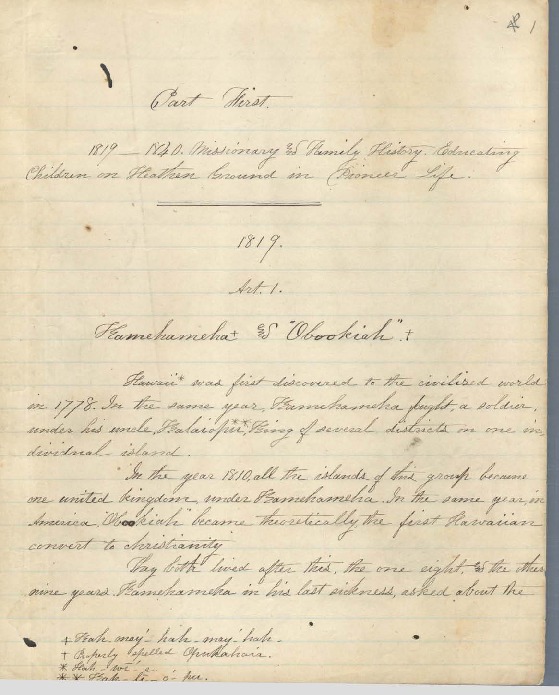 * 1
Part First.
1819 – 1840. Missionary & Family History. Educating
Children on Heathen Ground in Pioneer Life.
1819.
Art. 1.
Kamehameha† & "Obookiah".†
Hawaii* was first discovered to the civilized world
in 1778. In the same year, Kamehameha fought, a soldier,
under his uncle, Kalaiopu**, King of several districts in one in-
dividual island.
In the year 1810, all the islands of this group became
one united kingdom under Kamehameha. In the same year, in
America "Obookiah" became theoretically the first Hawaiian
convert to christianity
They both lived after this, the one eight & the other
nine years. Kamehameha in his last sickness, asked about the
† Kah-may-hah-may-hah-
† Properly spelled
* Hah-wi-e-